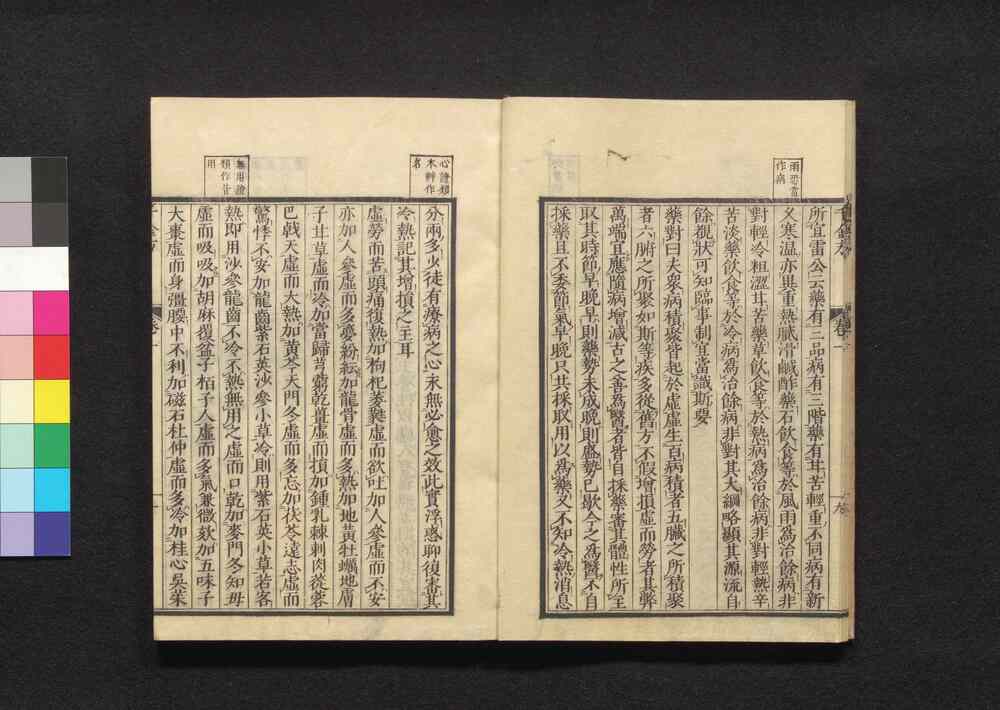 雨恐當
作病
所宜雷公云藥有三品病有三階藥有甘苦輕重不同病有新
久寒温亦異重熱膩滑鹹酢藥石飲食等於風雨爲治餘病非
對輕冷粗澀甘苦藥草飲食等於熱病爲治餘病非對輕熱辛
苦淡藥飲食等於冷病爲治餘病非對其大綱略顯其源流自
餘覩狀可知臨事制宜當識斯要
藥對曰夫衆病積聚皆起於虛虛生百病積者五臟之所積聚
者六腑之所聚如斯等疾多從舊方不假增損虛而勞者其弊
萬端宜應隨病增減古之善爲醫者皆自採藥審其體性所主
取其時節早晚早則藥勢未成晚則盛勢已歇今之爲醫不自
採藥且不委節氣早晚只共採取用以爲藥又不知冷熱消息
心證類
本艸作
名
分兩多少徒有療病之心永無必愈之效此實浮惑聊復審其
冷熱記其增損之主耳
虛勞而苦頭痛復熱加枸杞萎蕤虛而欲吐加人參虛而不安
亦加人參虛而多夢紛紜加龍骨虛而多熱加地黄牡蠣地膚
子甘草虛而冷加當歸芎藭乾薑虛而損加鍾乳棘刺肉蓯蓉
巴戟天虛而大熱加黄芩天門冬虛而多忘加茯苓遠志虛而
驚悸不安加龍齒紫石英沙參小草冷則用紫石英小草若客
熱即用沙參龍齒不冷不熱無用之虛而口乾加麥門冬知母
虛而吸吸加胡麻覆盆子栢子人虛而多氣兼微欬加五味子
大棗虛而身彊腰中不利加磁石杜仲虛而多冷加桂心吳茱
無用證
類作皆
用
卷一